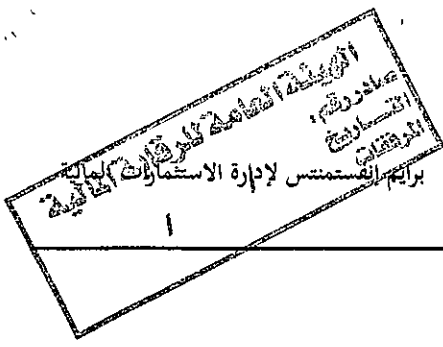 الهيئة العامة للرقابة المالية
صادر رقم:
التاريخ
المرفقات
برايم إنفستمنتس لإدارة الاستثمارات المالية
أ